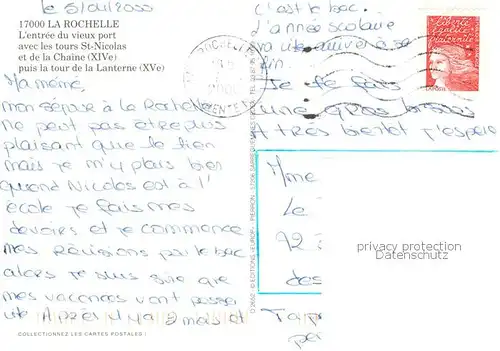 le 5/04/2000
17000 LA ROCHELLE
L'entrée du vieux port
avec les tours St-Nicolas
et de la Chaîne (XIVe)
puis la tour de la Lanterne (XVe)
Ma mémé,
mon séjour à La Rochelle
ne peut pas être plus
plaisant que le tien
mais je m'y plais bien
quand Nicolas est à l'
école je fais mes
devoirs et je commence
mes révisions pour le bac
alors je suis sûre que
mes vacances vont passer
vite Après il y a 2 mois et
COLLECTIONNEZ LES CARTES POSTALES !
c'est le bac.
L'année scolaire
va vite arriver à sa
fin.
Je te fais
une gros bisous
A très bientôt j'espère
Mme
Le
92
des
privacy protection
watermark
liberté
égalité
fraternité